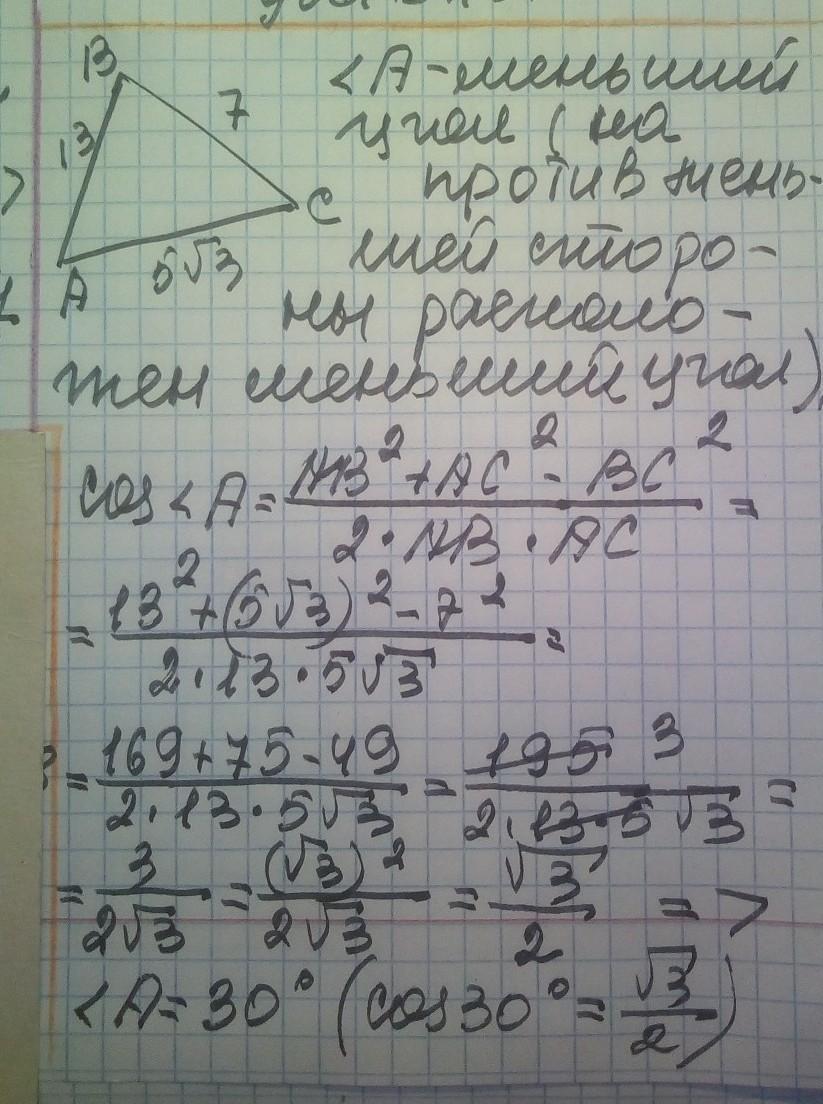 B
13
7
C
A
5√3
<A-меньший
угол (на
против мень-
шей сторо-
ны располо-
жен меньший угол)
cos<A= (AB²+AC²-BC²)/(2·AB·AC) =
= (13²+(5√3)²-7²)/(2·13·5√3) =
= (169+75-49)/(2·13·5√3) = (195 3)/(2·13·5√3) =
= 3/(2√3) = (√3)²/(2√3) = √3/2 =>
<A=30° (cos30°=√3/2)